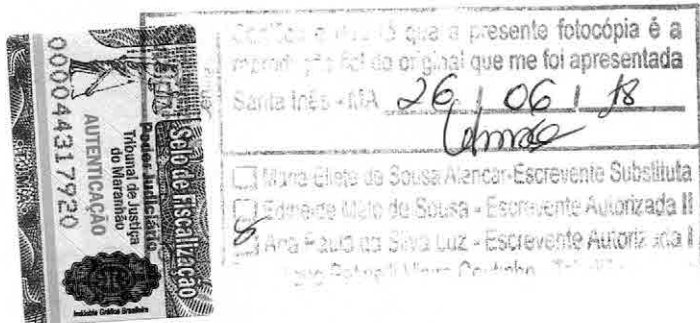 Selo de Fiscalização
Poder Judiciário
Tribunal de Justiça
do Maranhão
AUTENTICAÇÃO
000044317920
Indústria Gráfica Brasileira
que a presente fotocópia é a
do original que me foi apresentada
Santa Inês - MA 26 / 06 / 18
Maria Eliete de Sousa Alencar-Escrevente Substituta
de Sousa - Escrevente Autorizada II
Ana Paula da Silva Luz - Escrevente Autorizada I